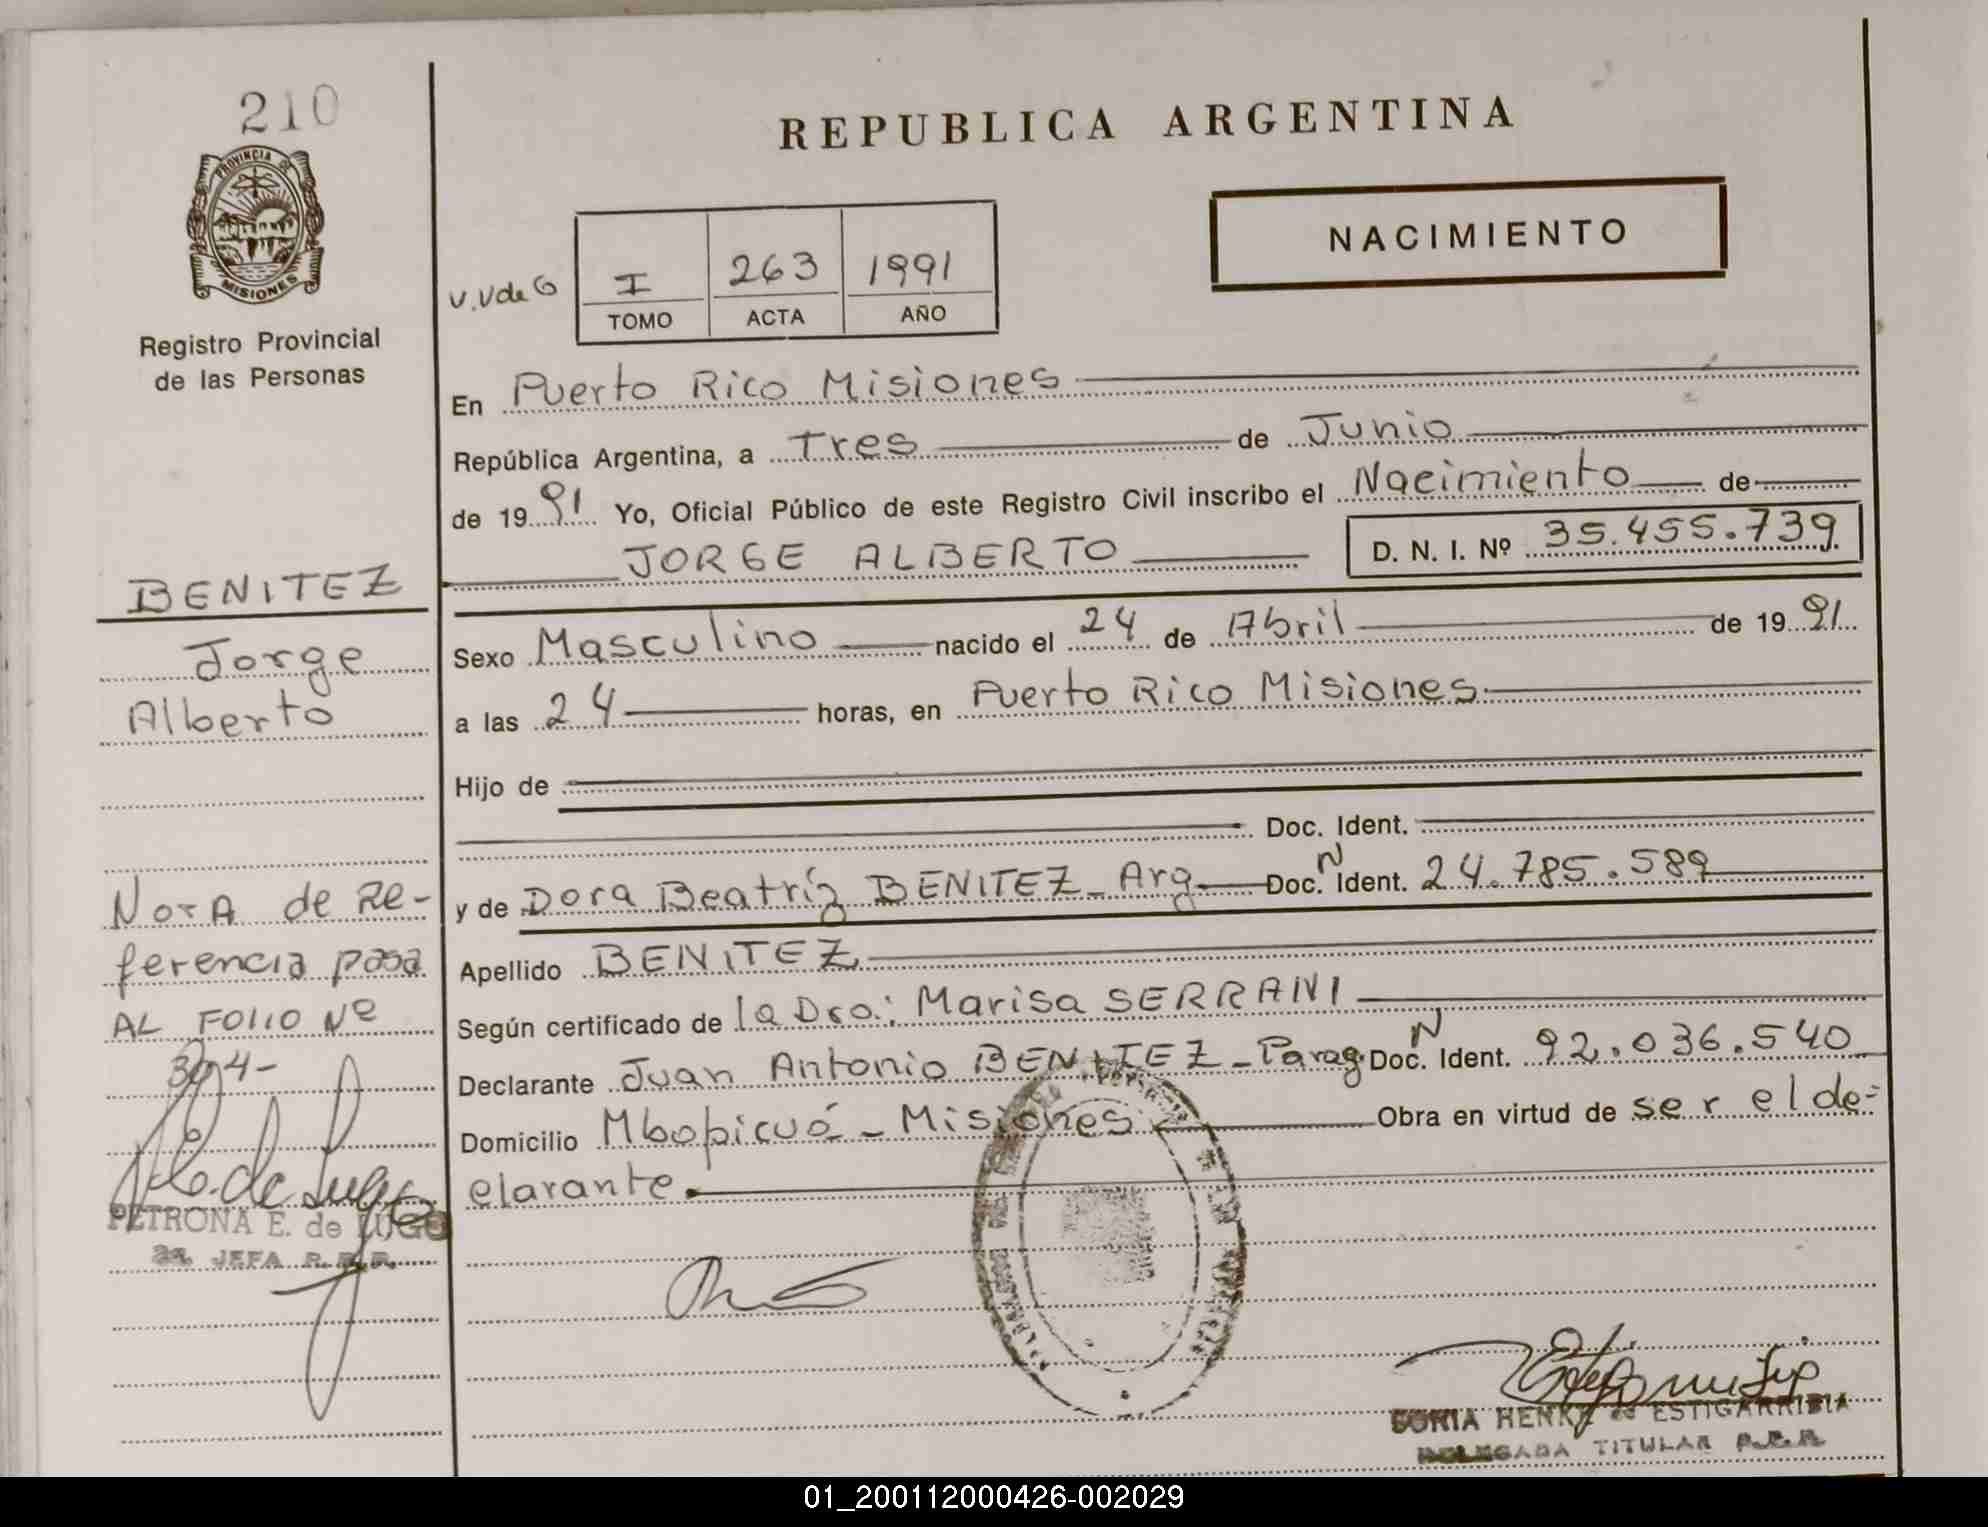 210
PROVINCIA DE
MISIONES
Registro Provincial
de las Personas
REPUBLICA ARGENTINA
NACIMIENTO
V.V de G
I 263 1991
TOMO ACTA AÑO
En Puerto Rico Misiones
República Argentina, a Tres de Junio
de 1991 Yo, Oficial Público de este Registro Civil inscribo el Nacimiento de
JORGE ALBERTO D. N. I. Nº 35.455.739
Sexo Masculino nacido el 24 de Abril de 1991
a las 24 horas, en Puerto Rico Misiones
Hijo de
Doc. Ident.
y de Dora Beatríz BENITEZ - Arg Doc. N Ident. 24.785.589
Apellido BENITEZ
Según certificado de la Dra: Marisa SERRANI
Declarante Juan Antonio BENITEZ - Parag. Doc. N Ident. 92.036.540
Domicilio Mbopicuá - Misiones Obra en virtud de ser el de-
clarante.
BENITEZ
Jorge
Alberto
NOTA de Re-
ferencia pasa
AL FOLIO Nº
304-
PETRONA E. de LUGO
JEFA R.P.P.
SONIA HENKE de ESTIGARRIBIA
DELEGADA TITULAR R.P.P.
01_200112000426-002029